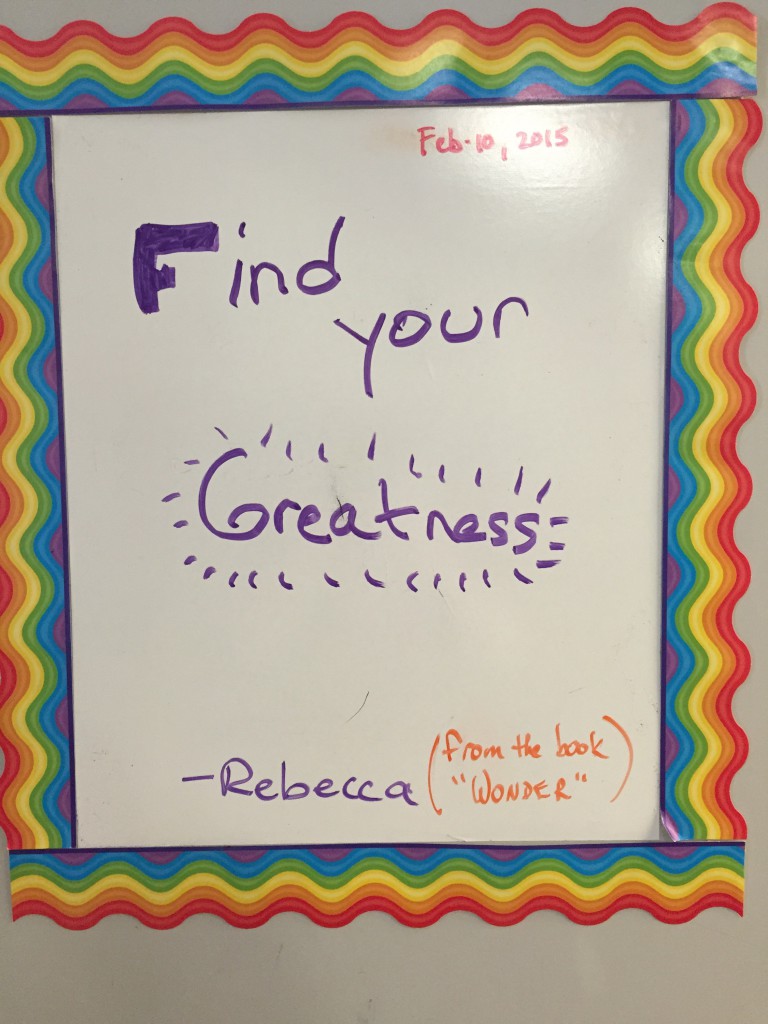 Feb-10, 2015
Find
your
Greatness
-Rebecca (from the book
"WONDER")